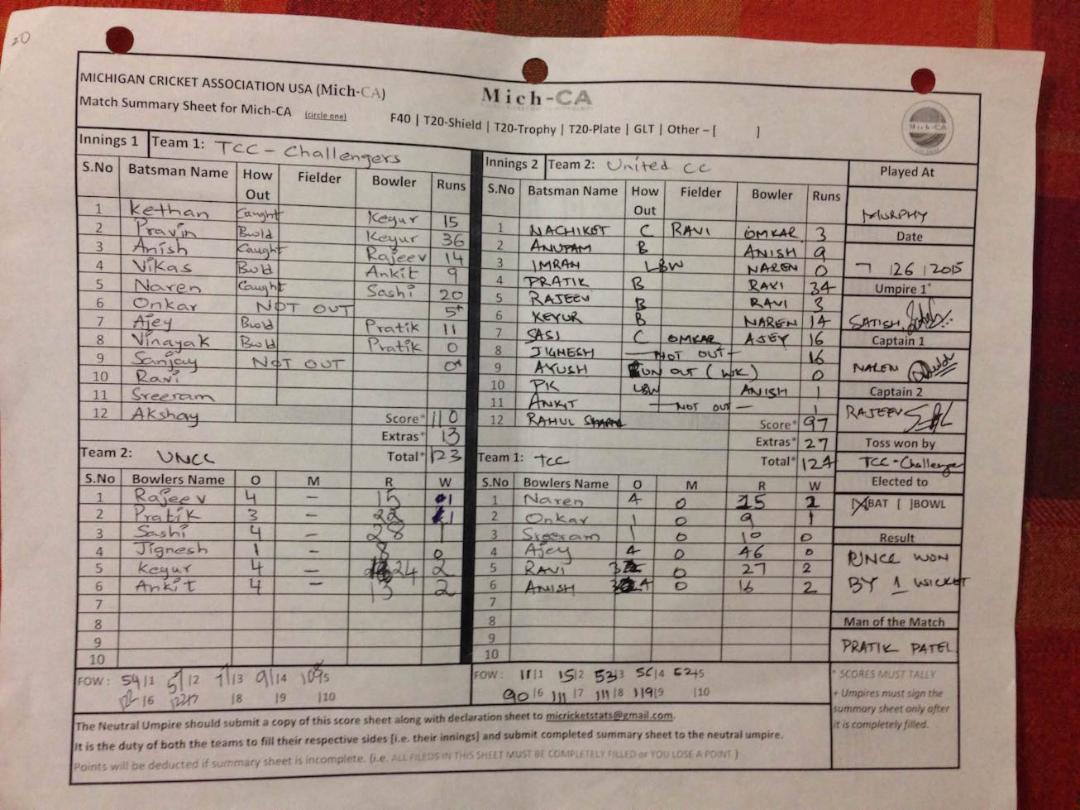 20
MICHIGAN CRICKET ASSOCIATION USA (Mich-CA)
Mich-CA
Match Summary Sheet for Mich-CA (circle one) F40 | T20-Shield | T20-Trophy | T20-Plate | GLT | Other – [ ]
Mich-CA
Innings 1 Team 1: TCC - Challengers
S.No Batsman Name How Out Fielder Bowler Runs
1 Kethan Caught Keyur 15
2 Pravin Bwold Keyur 36
3 Anish Caught Rajeev 14
4 Vikas Bwld Ankit 9
5 Naren Caught Sashi 20
6 Onkar NOT OUT 5*
7 Ajey Bwold Pratik 11
8 Vinayak Bwld Pratik 0
9 Sanjay NOT OUT 0*
10 Ravi
11 Sreeram
12 Akshay
Score* 110
Extras* 13
Total* 123
Team 2: UNCC
S.No Bowlers Name O M R W
1 Rajeev 4 – 15 1
2 Pratik 3 – 22 1
3 Sashi 4 – 28 1
4 Jignesh 1 – 8 0
5 Keyur 4 – 24 2
6 Ankit 4 – 13 2
7
8
9
10
FOW: 54|1 |2 |3 |4 |5
|6 |7 |8 |9 |10
Innings 2 Team 2: United CC
S.No Batsman Name How Out Fielder Bowler Runs
1 NACHIKET C RAVI OMKAR 3
2 ANUPAM B ANISH 9
3 IMRAN LBW NAREN 0
4 PRATIK B RAVI 34
5 RAJEEV B RAVI 3
6 KEYUR B NAREN 14
7 SASI C OMKAR AJEY 16
8 JIGNESH — NOT OUT — 16
9 AYUSH RUN OUT (WK) 0
10 PK LBW ANISH 1
11 ANKIT — NOT OUT — 1
12 RAHUL
Score* 97
Extras* 27
Total* 124
Team 1: TCC
S.No Bowlers Name O M R W
1 Naren 4 0 15 2
2 Onkar 1 0 9 1
3 Sreeram 1 0 10 0
4 Ajey 4 0 46 0
5 RAVI 0 27 2
6 ANISH 0 16 2
7
8
9
10
FOW: 11|1 15|2 53|3 56|4 62|5
90|6 111|7 111|8 119|9 |10
Played At
MURPHY
Date
7 | 26 | 2015
Umpire 1*
SATISH
Captain 1
NAREN
Captain 2
RAJEEV
Toss won by
TCC-Challenger
Elected to
[X]BAT [ ]BOWL
Result
UNCC WON
BY 1 WICKET
Man of the Match
PRATIK PATEL
* SCORES MUST TALLY
+ Umpires must sign the
summary sheet only after
it is completely filled.
The Neutral Umpire should submit a copy of this score sheet along with declaration sheet to micricketstats@gmail.com.
It is the duty of both the teams to fill their respective sides [i.e. their innings] and submit completed summary sheet to the neutral umpire.
Points will be deducted if summary sheet is incomplete. (i.e. ALL FILEDS IN THIS SHEET MUST BE COMPLETELY FILLED or YOU LOSE A POINT )